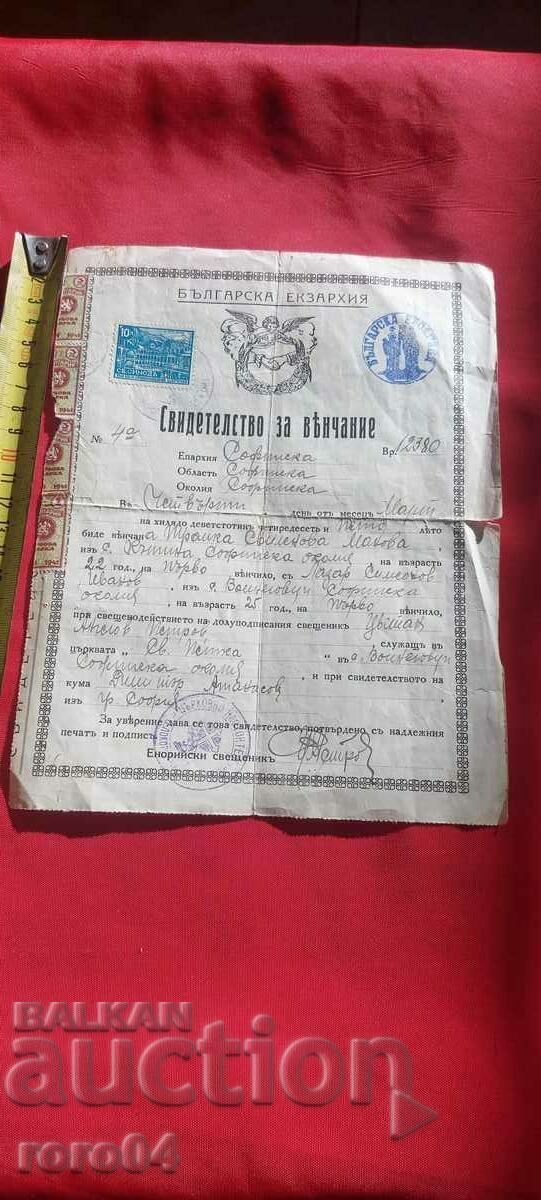 БЪЛГАРСКА ЕКЗАРХИЯ
10
БЪЛГАРСКА ЕКЗАРХИЯ
Свидетелство за вѣнчание
№ 4а Вр. 12380
Епархия Софийска
Область Софийска
Околия Софийска
Въ Четвърти день отъ месецъ Мартъ
на хилядо деветстотин четиредесеть и пето лѣто
биде вѣнчана Трайка Симеонова Манова
изъ с. Кътина Софийска околия на възрасть
22 год., на Първо вѣнчило, съ Лазар Симеонов
Иванов, изъ с. Войнеговци Софийска
околия, на възрасть 25 год., на Първо вѣнчило,
при свещенодействието на долуподписания свещеникъ
Ангелов Петров служащъ въ
църквата „Св. Петка" въ с. Войнеговци
Софийска околия, и при свидетелството на
кума Димитър Атанасов
изъ гр. София
За уверение дава се това свидетелство, потвърдено съ надлежния
печатъ и подписъ
Енорийски свещеникъ
BALKAN
auction
roro04